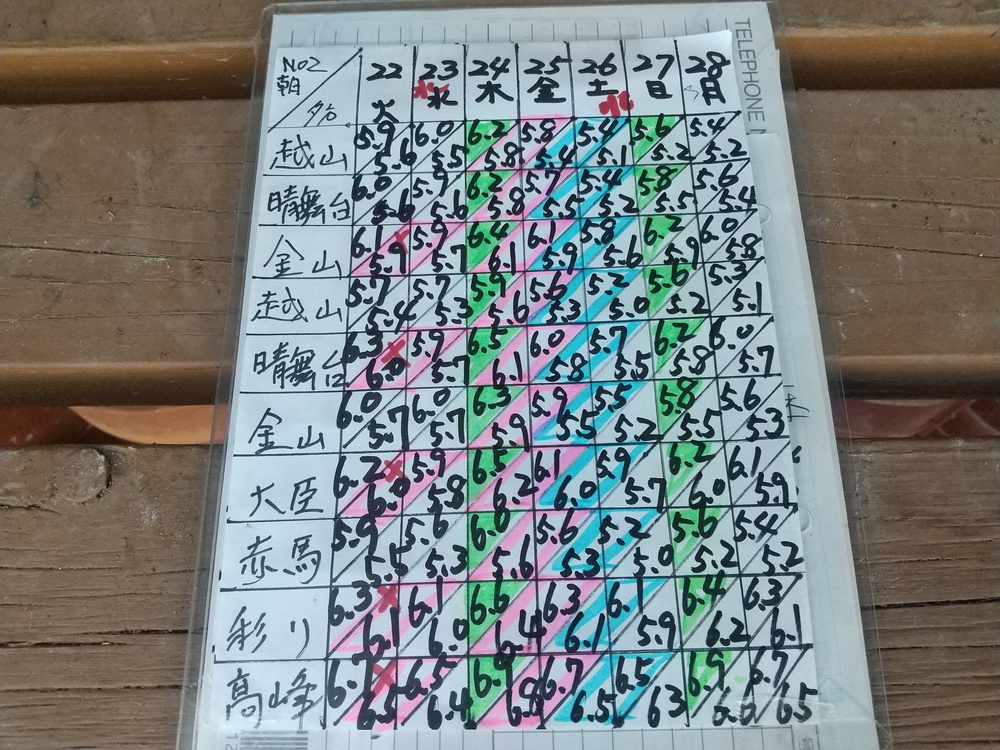 No2 22 23 24 25 26 27 28
朝 火 水 木 金 土 日 月
夕
5.9 6.0 6.2 5.8 5.4 5.6 5.4
越山 5.6 5.5 5.8 5.4 5.1 5.2 5.2
6.0 5.7 6.2 5.7 5.4 5.8 5.6
晴舞台 5.6 5.6 5.8 5.5 5.2 5.5 5.4
6.1 5.9 6.4 6.1 5.8 6.2 6.0
金山 5.9 5.7 6.1 5.9 5.6 5.9 5.8
5.7 5.7 5.9 5.6 5.2 5.6 5.3
越山 5.4 5.3 5.6 5.3 5.0 5.2 5.1
6.3 5.9 6.5 6.0 5.7 6.2 6.0
晴舞台 6.0 5.7 6.1 5.8 5.5 5.8 5.7
6.0 6.0 6.3 5.9 5.5 5.8 5.6
金山 5.7 5.7 5.9 5.5 5.2 5.5 5.3
6.2 5.9 6.5 6.1 5.9 6.2 6.1
大臣 6.0 5.8 6.2 6.0 5.7 6.0 5.9
5.9 5.6 6.0 5.6 5.2 5.6 5.4
赤馬 5.5 5.3 5.6 5.3 5.0 5.2 5.2
6.3 6.1 6.6 6.3 6.1 6.4 6.3
彩り 6.1 6.0 6.4 6.1 5.9 6.2 6.1
6.7 6.5 6.9 6.7 6.5 6.9 6.7
高峰 6.5 6.4 6.8 6.5 63 65
TELEPHONE